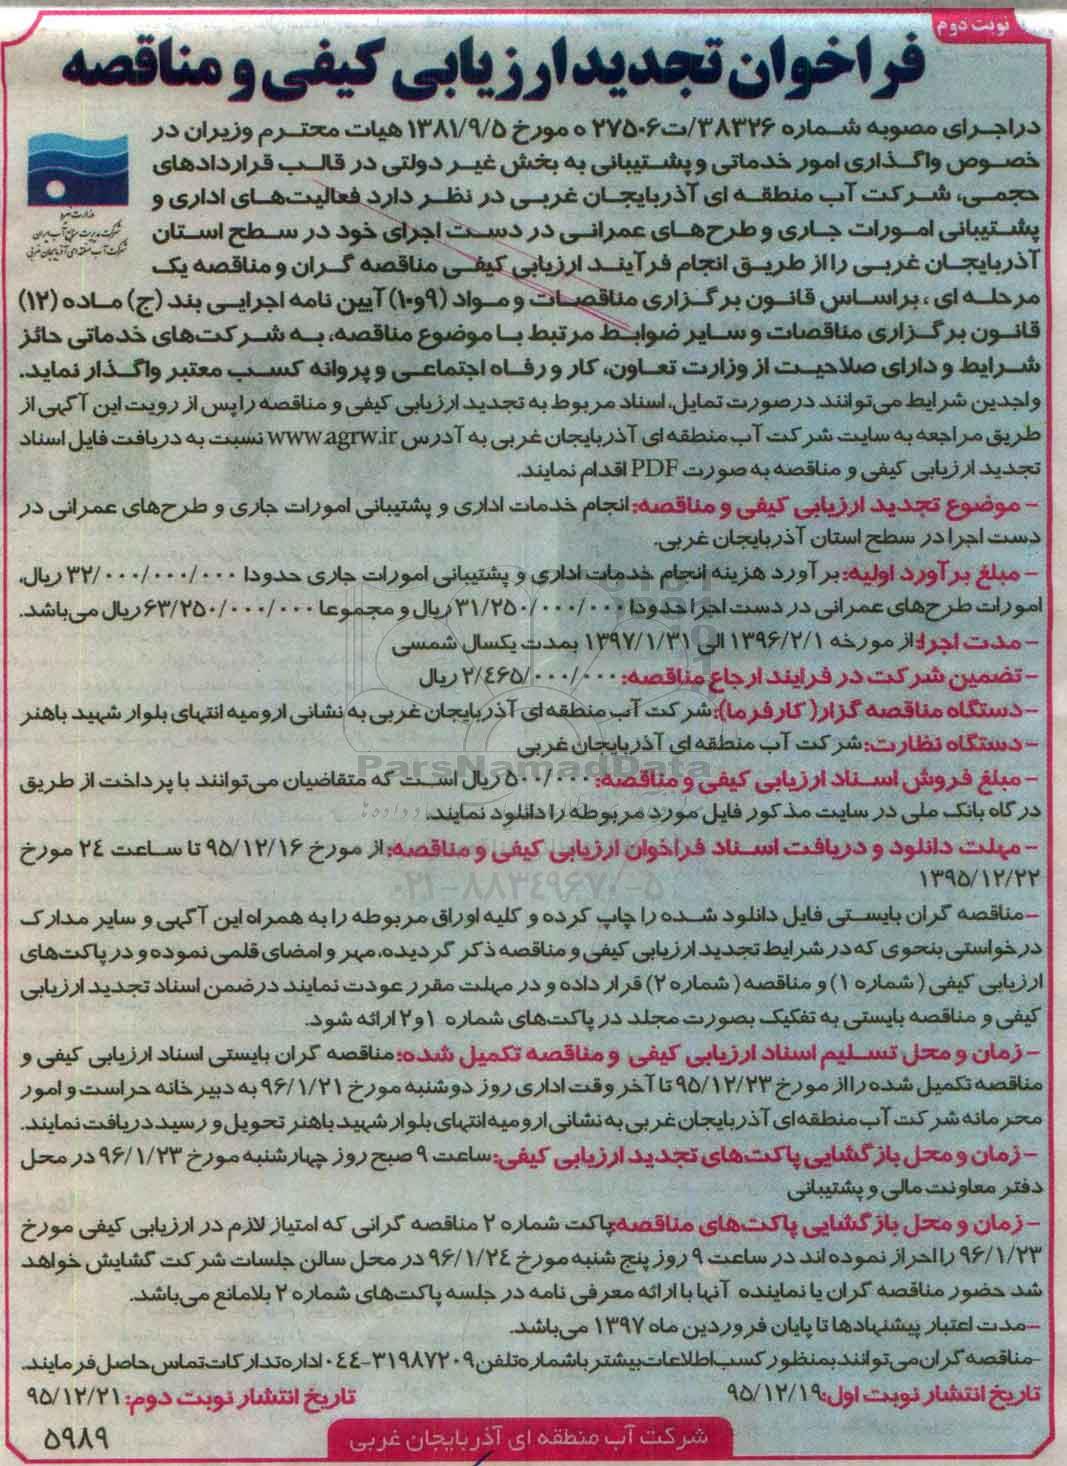 نوبت دوم
فراخوان تجدید ارزیابی کیفی و مناقصه
وزارت نیرو
شرکت مدیریت منابع آب ایران
شرکت آب منطقه ای آذربایجان غربی
در اجرای مصوبه شماره ۳۸۳۲۶/ت۲۷۵۰۶ ه مورخ ۱۳۸۱/۹/۵ هیات محترم وزیران در
خصوص واگذاری امور خدماتی و پشتیبانی به بخش غیر دولتی در قالب قراردادهای
حجمی، شرکت آب منطقه ای آذربایجان غربی در نظر دارد فعالیت‌های اداری و
پشتیبانی امورات جاری و طرح‌های عمرانی در دست اجرای خود در سطح استان
آذربایجان غربی را از طریق انجام فرآیند ارزیابی کیفی مناقصه گران و مناقصه یک
مرحله ای ، براساس قانون برگزاری مناقصات و مواد (۹و۱۰) آیین نامه اجرایی بند (ج) ماده (۱۲)
قانون برگزاری مناقصات و سایر ضوابط مرتبط با موضوع مناقصه، به شرکت‌های خدماتی حائز
شرایط و دارای صلاحیت از وزارت تعاون، کار و رفاه اجتماعی و پروانه کسب معتبر واگذار نماید.
واجدین شرایط می‌توانند درصورت تمایل، اسناد مربوط به تجدید ارزیابی کیفی و مناقصه را پس از رویت این آگهی از
طریق مراجعه به سایت شرکت آب منطقه ای آذربایجان غربی به آدرس www.agrw.ir نسبت به دریافت فایل اسناد
تجدید ارزیابی کیفی و مناقصه به صورت PDF اقدام نمایند.
- موضوع تجدید ارزیابی کیفی و مناقصه: انجام خدمات اداری و پشتیبانی امورات جاری و طرح‌های عمرانی در
دست اجرا در سطح استان آذربایجان غربی.
- مبلغ برآورد اولیه: برآورد هزینه انجام خدمات اداری و پشتیبانی امورات جاری حدودا ۳۲/۰۰۰/۰۰۰/۰۰۰ ریال،
امورات طرح‌های عمرانی در دست اجرا حدودا ۳۱/۲۵۰/۰۰۰/۰۰۰ ریال و مجموعا ۶۳/۲۵۰/۰۰۰/۰۰۰ ریال می‌باشد.
- مدت اجرا: از مورخه ۱۳۹۶/۲/۱ الی ۱۳۹۷/۱/۳۱ بمدت یکسال شمسی
- تضمین شرکت در فرایند ارجاع مناقصه: ۲/۴۶۵/۰۰۰/۰۰۰ ریال
- دستگاه مناقصه گزار( کارفرما): شرکت آب منطقه ای آذربایجان غربی به نشانی ارومیه انتهای بلوار شهید باهنر
- دستگاه نظارت: شرکت آب منطقه ای آذربایجان غربی
ParsNamadData
- مبلغ فروش اسناد ارزیابی کیفی و مناقصه: ۵۰۰/۰۰۰ ریال است که متقاضیان می‌توانند با پرداخت از طریق
درگاه بانک ملی در سایت مذکور فایل مورد مربوطه را دانلود نمایند.
- مهلت دانلود و دریافت اسناد فراخوان ارزیابی کیفی و مناقصه: از مورخ ۹۵/۱۲/۱۶ تا ساعت ۲۴ مورخ
۱۳۹۵/۱۲/۲۲
۰۲۱-۸۸۳۴۹۶۷۰-۵
-مناقصه گران بایستی فایل دانلود شده را چاپ کرده و کلیه اوراق مربوطه را به همراه این آگهی و سایر مدارک
درخواستی بنحوی که در شرایط تجدید ارزیابی کیفی و مناقصه ذکر گردیده، مهر و امضای قلمی نموده و در پاکت‌های
ارزیابی کیفی ( شماره ۱) و مناقصه ( شماره ۲) قرار داده و در مهلت مقرر عودت نمایند درضمن اسناد تجدید ارزیابی
کیفی و مناقصه بایستی به تفکیک بصورت مجلد در پاکت‌های شماره ۱و۲ ارائه شود.
- زمان و محل تسلیم اسناد ارزیابی کیفی و مناقصه تکمیل شده: مناقصه گران بایستی اسناد ارزیابی کیفی و
مناقصه تکمیل شده را از مورخ ۹۵/۱۲/۲۳ تا آخر وقت اداری روز دوشنبه مورخ ۹۶/۱/۲۱ به دبیرخانه حراست و امور
محرمانه شرکت آب منطقه ای آذربایجان غربی به نشانی ارومیه انتهای بلوار شهید باهنر تحویل و رسید دریافت نمایند.
- زمان و محل بازگشایی پاکت‌های تجدید ارزیابی کیفی: ساعت ۹ صبح روز چهارشنبه مورخ ۹۶/۱/۲۳ در محل
دفتر معاونت مالی و پشتیبانی
- زمان و محل بازگشایی پاکت‌های مناقصه: پاکت شماره ۲ مناقصه گرانی که امتیاز لازم در ارزیابی کیفی مورخ
۹۶/۱/۲۳ را احراز نموده اند در ساعت ۹ روز پنج شنبه مورخ ۹۶/۱/۲۴ در محل سالن جلسات شرکت گشایش خواهد
شد حضور مناقصه گران یا نماینده آنها با ارائه معرفی نامه در جلسه پاکت‌های شماره ۲ بلامانع می‌باشد.
-مدت اعتبار پیشنهادها تا پایان فروردین ماه ۱۳۹۷ می‌باشد.
-مناقصه گران می‌توانند بمنظور کسب اطلاعات بیشتر با شماره تلفن ۳۱۹۸۷۲۰۹-۰۴۴ اداره تدارکات تماس حاصل فرمایند.
تاریخ انتشار نوبت اول: ۹۵/۱۲/۱۹ تاریخ انتشار نوبت دوم: ۹۵/۱۲/۲۱
شرکت آب منطقه ای آذربایجان غربی
۵۹۸۹